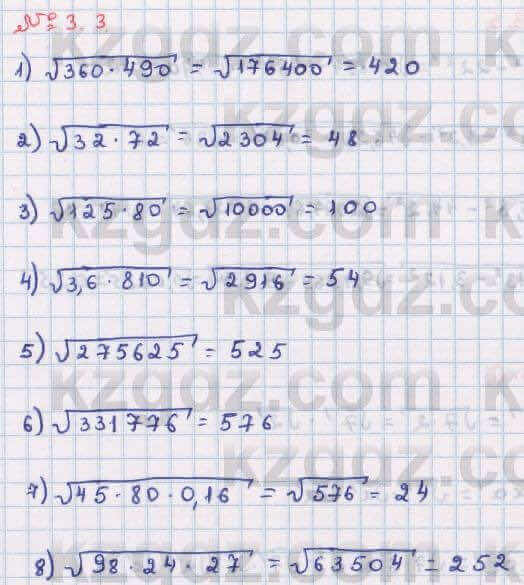 № 3. 3
1) √360 · 490 = √176400 = 420
2) √32 · 72 = √2304 = 48
3) √125 · 80 = √10000 = 100
4) √3,6 · 810 = √2916 = 54
5) √275625 = 525
6) √331776 = 576
7) √45 · 80 · 0,16 = √576 = 24
8) √98 · 24 · 27 = √63504 = 252
kzgdz.com